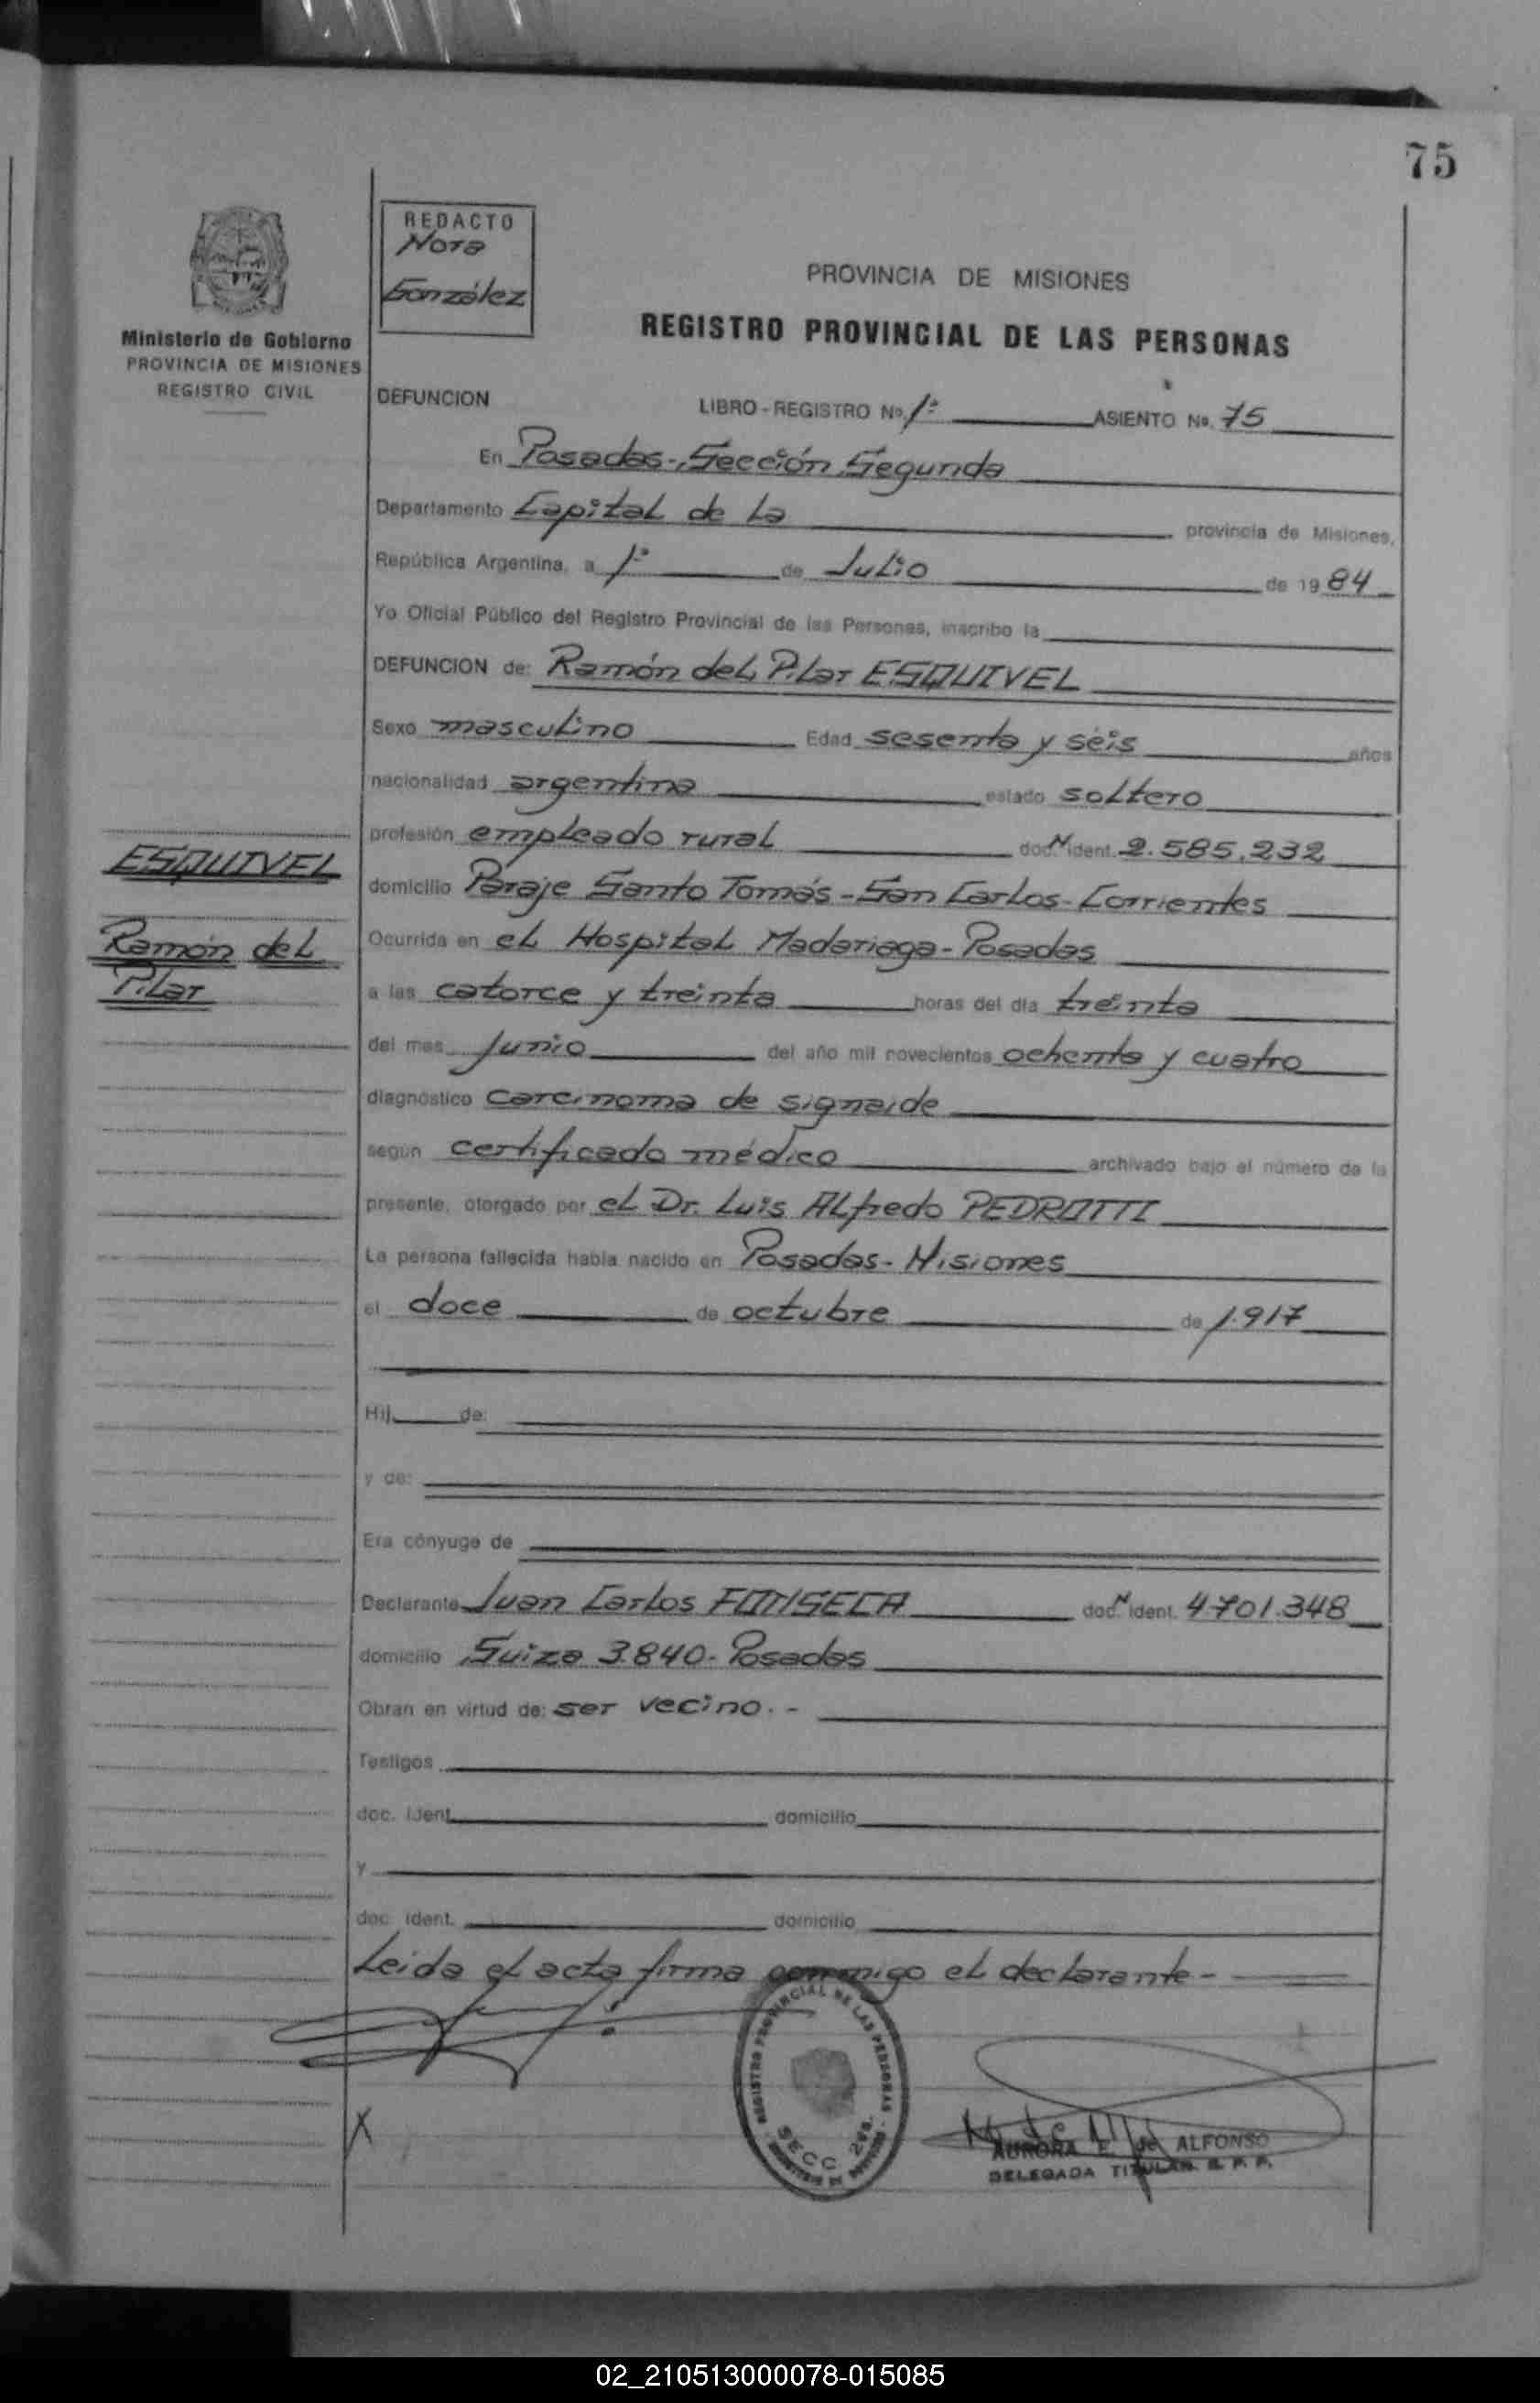 75
REDACTO
Nora
González
Ministerio de Gobierno
PROVINCIA DE MISIONES
REGISTRO CIVIL
PROVINCIA DE MISIONES
REGISTRO PROVINCIAL DE LAS PERSONAS
DEFUNCION LIBRO-REGISTRO Nº. 1º ASIENTO No. 75
En Posadas-Sección Segunda
Departamento Capital de la provincia de Misiones,
República Argentina, a 1º de Julio de 1984
Yo Oficial Público del Registro Provincial de las Personas, inscribo la
DEFUNCION de: Ramón del Pilar ESQUIVEL
Sexo masculino Edad sesenta y seis años
nacionalidad argentina estado soltero
profesión empleado rural doc. N ident. 2.585.232
domicilio Paraje Santo Tomás-San Carlos-Corrientes
Ocurrida en el Hospital Madariaga-Posadas
a las catorce y treinta horas del día treinta
del mes Junio del año mil novecientos ochenta y cuatro
diagnóstico carcinoma de signaide
según certificado médico archivado bajo el número de la
presente, otorgado por el Dr. Luis Alfredo PEDROTTI
La persona fallecida había nacido en Posadas-Misiones
el doce de octubre de 1.917
Hij de:
y de:
Era cónyuge de
Declarante Juan Carlos FONSECA doc. N ident. 4.701.348
domicilio Suiza 3.840-Posadas
Obran en virtud de: ser vecino.-
Testigos
doc. ident. domicilio
y
doc. ident. domicilio
Leida el acta firma conmigo el declarante-
ESQUIVEL
Ramón del
Pilar
REGISTRO PROVINCIAL DE LAS PERSONAS
SECC. 2da.
AURORA E. de ALFONSO
DELEGADA TITULAR R. P. P.
02_210513000078-015085